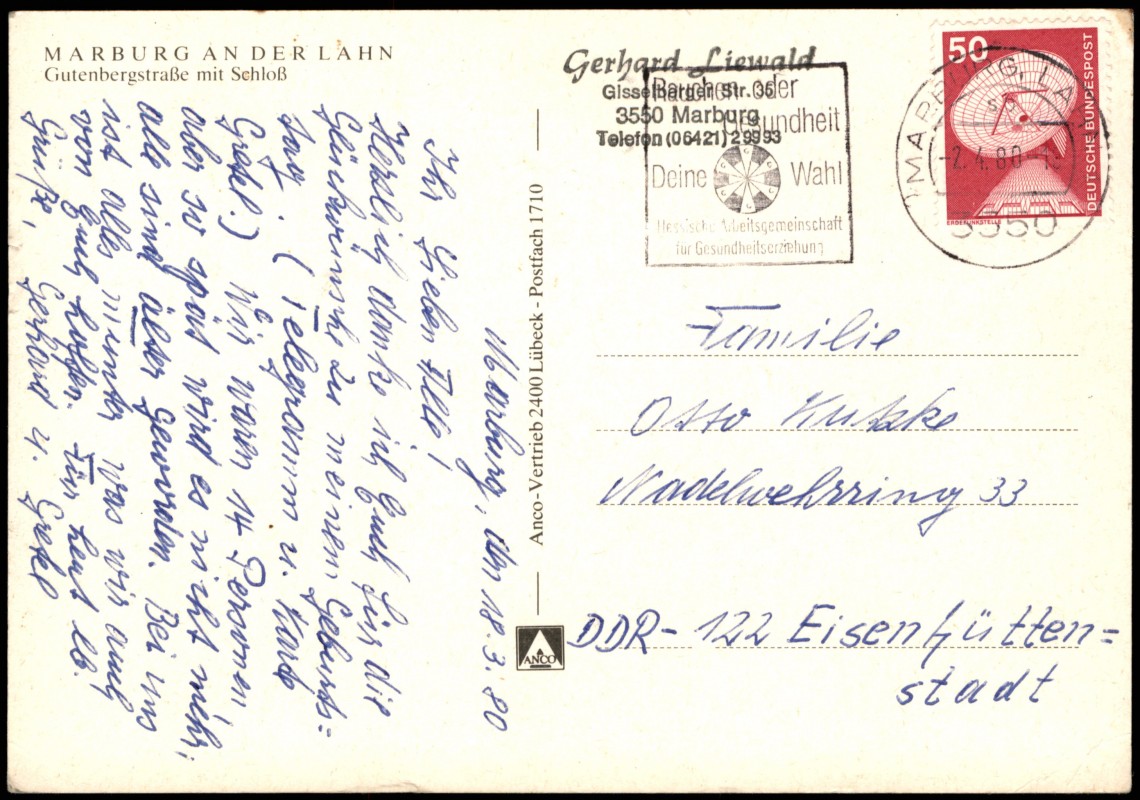 MARBURG AN DER LAHN
Gutenbergstraße mit Schloß
Marburg, den 18.3.80
Ihr Lieben Alle!
Herzlich danke ich Euch für die
Glückwünsche zu meinem Geburts=
tag. (Telegramm u. Karte
Gretel.) Wir waren 14 Personen,
aber so spät wird es nicht mehr;
alle sind älter geworden. Bei uns
ist alles munter was wir auch
von Euch hoffen. Für heut lb.
Grüße, Gerhard u. Gretel
Anco-Vertrieb 2400 Lübeck - Postfach 1710
ANCO
Gerhard Liewald
Gisselberger Str. 35
3550 Marburg
Telefon (06421) 29993
Rauchen oder
Gesundheit
Deine Wahl
Hessische Arbeitsgemeinschaft
für Gesundheitserziehung
MARBURG, LAHN
-2.4.80
3550
50
DEUTSCHE BUNDESPOST
ERDEFUNKSTELLE
Familie
Otto Kutzke
Nadelwehrring 33
DDR- 122 Eisenhütten=
stadt